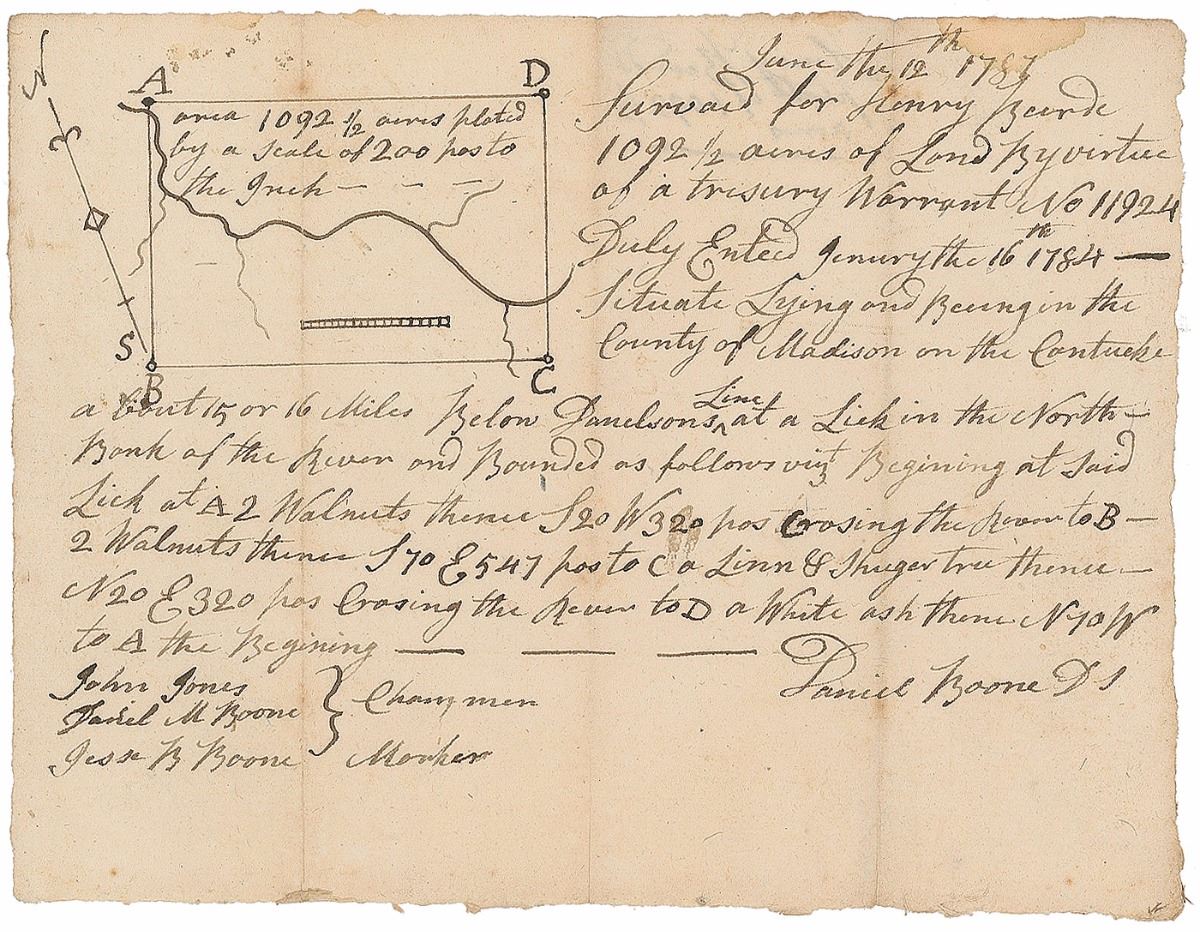 June the 12th 1787
Survaid for Henry Beard
1092 1/2 acres of Land By virtue
of a tresury Warrant No 11924
Duly Enteed Jenury the 16th 1784 —
Situate Lying and Beeing in the
County of Madison on the Cantucke
a bout 15 or 16 Miles Below Danelsons Line at a Lick in the North —
Bank of the River and Bounded as follows viz Begining at Said
Lick at A 2 Walnuts thence S 20 W 320 pos Crosing the River to B —
2 Walnuts thence S 70 E 547 pos to C a Linn & Shuger tree thence —
N 20 E 320 pos Crosing the River to D a White ash thence N 70 W
to A the Begining — — —
Daniel Boone D S
John Jones
Daniel M Boone } Chain men
Jesse B Boone Marker
N
3
S
A
D
area 1092 1/2 acres plated
by a Scale of 200 pos to
the Inch — - - —
B
C